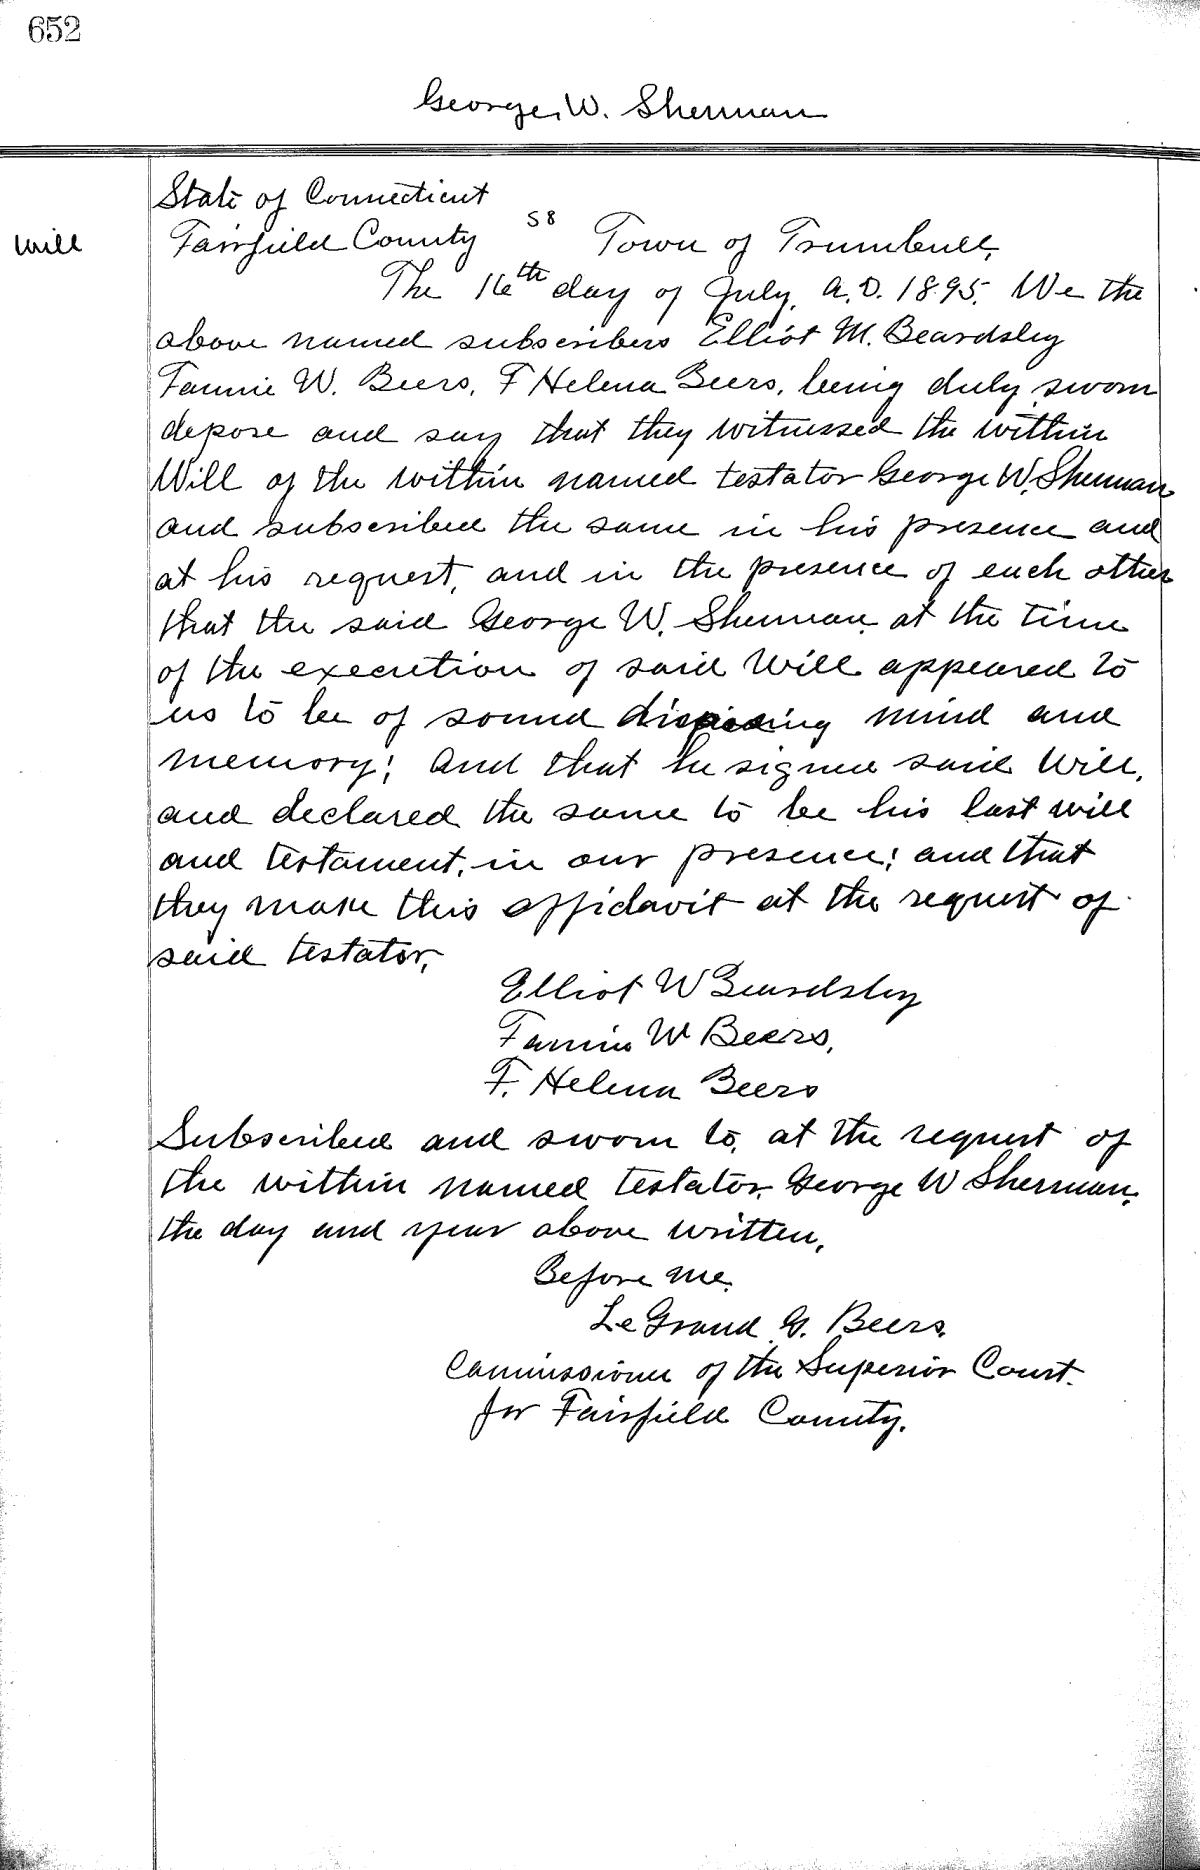 652
George W. Sherman
State of Connecticut
Will Fairfield County SS Town of Trumbull,
The 16th day of July, A.D. 1895. We the
above named subscribers Elliot M. Beardsley
Fannie W. Beers, F Helena Beers, being duly sworn
depose and say that they witnessed the within
Will of the within named testator George W. Sherman
and subscribed the same in his presence and
at his request, and in the presence of each other
that the said George W. Sherman, at the time
of the execution of said Will appeared to
us to be of sound disposing mind and
memory; and that he signed said Will,
and declared the same to be his last will
and testament, in our presence; and that
they make this affidavit at the request of
said testator,
Elliot W Beardsley
Fannie W Beers,
F. Helena Beers
Subscribed and sworn to, at the request of
the within named testator, George W Sherman,
the day and year above written,
Before me.
LeGrand G. Beers,
Commissioner of the Superior Court.
for Fairfield County.